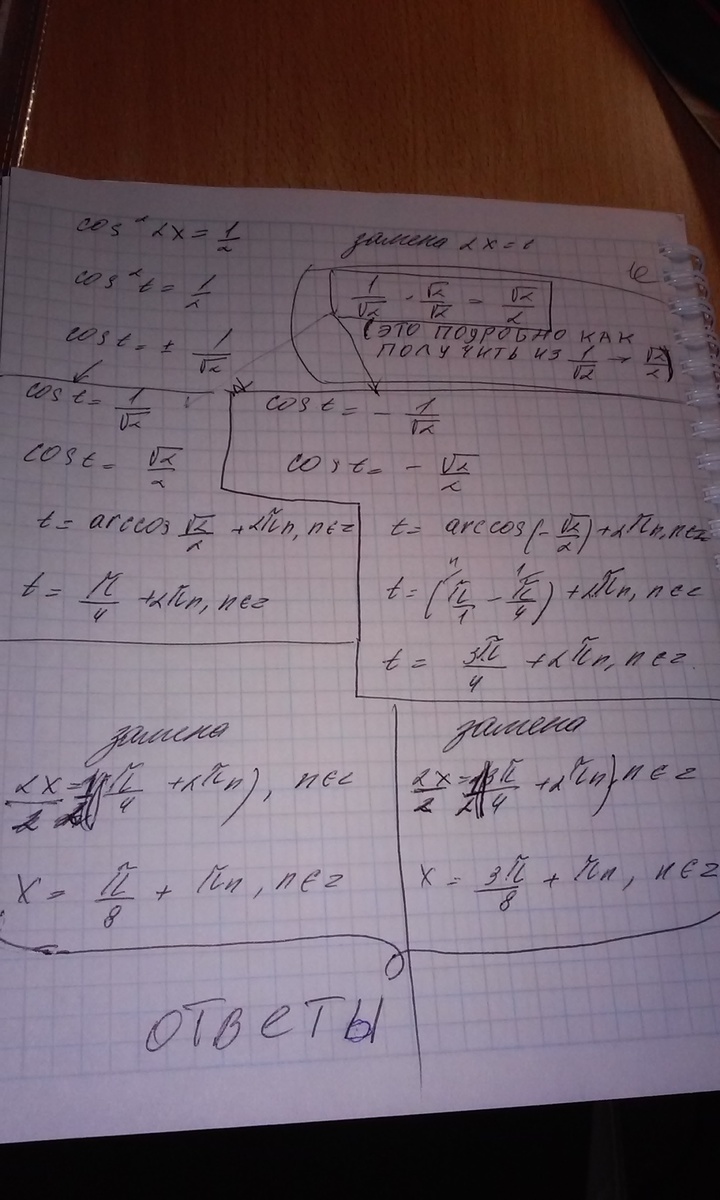 cos²2x = 1/2
замена 2x = t
cos²t = 1/2
1/√2 · √2/√2 = √2/2
(ЭТО ПОДРОБНО КАК
ПОЛУЧИТЬ ИЗ 1/√2 → √2/2)
cos t = ± 1/√2
cos t = 1/√2
cos t = √2/2
t = arccos √2/2 + 2πn, n∈z
t = π/4 + 2πn, n∈z
cos t = - 1/√2
cos t = - √2/2
t = arccos(-√2/2) + 2πn, n∈z
t = (π/1 - π/4) + 2πn, n∈z
t = 3π/4 + 2πn, n∈z
замена
2x/2 = 1/2(π/4 + 2πn), n∈z
x = π/8 + πn, n∈z
замена
2x/2 = 1/2(3π/4 + 2πn), n∈z
x = 3π/8 + πn, n∈z
ОТВЕТЫ